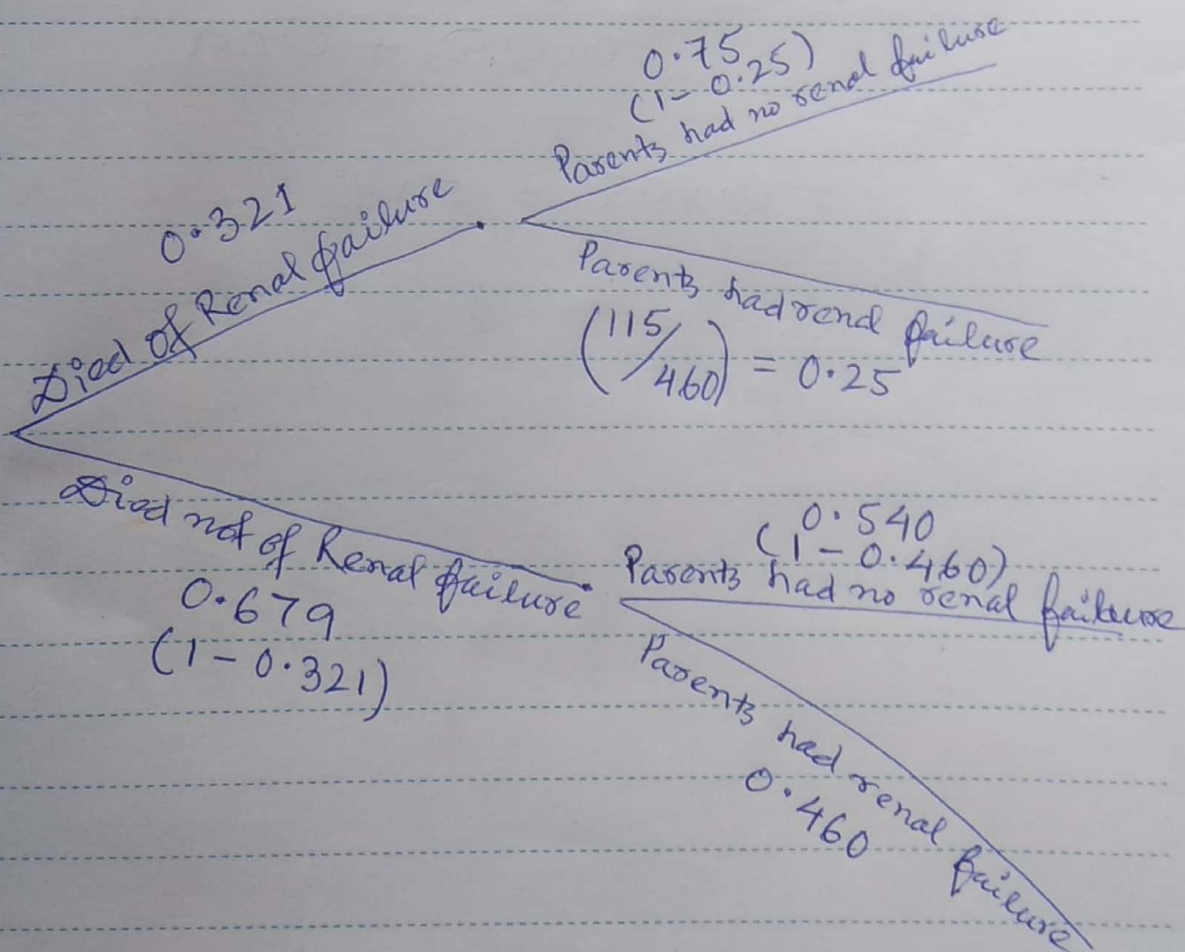 0.75
(1-0.25)
Parents had no renal failure
0.321
Died of Renal failure
Parents had renal failure
(115/460) = 0.25
Died not of Renal failure
0.679
(1-0.321)
0.540
(1-0.460)
Parents had no renal failure
Parents had renal failure
0.460